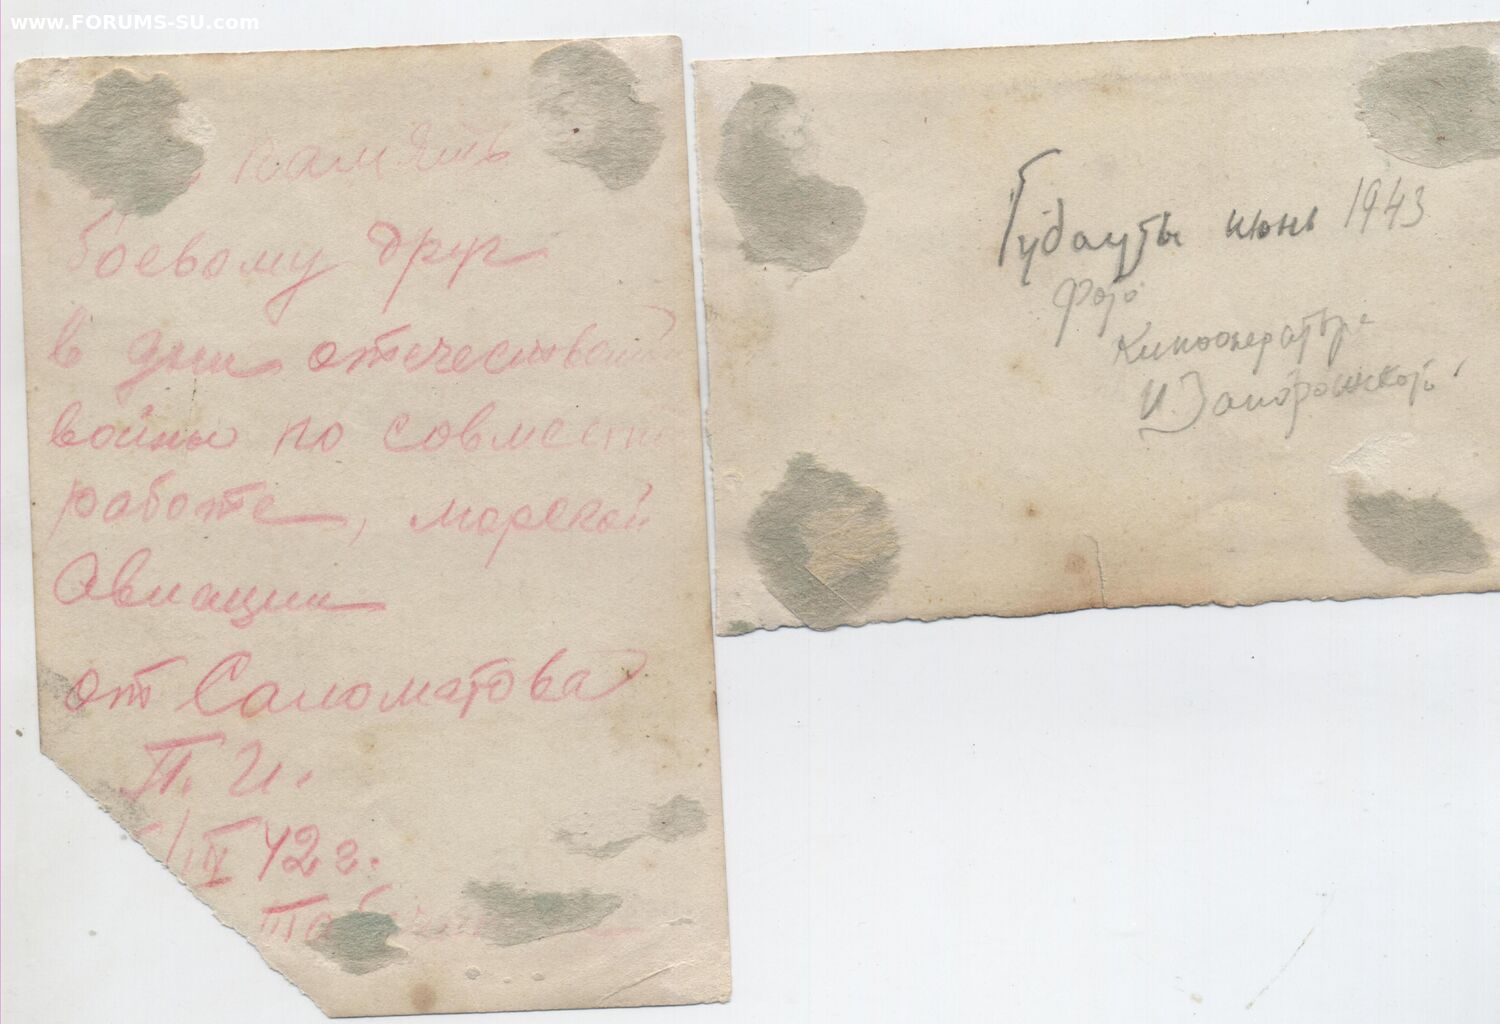 www.FORUMS-SU.com
память
боевому друг
в дни отечествен
войны по совместн
работе, морской
Авиации
от Саломатова
П. И.
/IV 42 г.
Гудауты июнь 1943
фото
Кинооператора